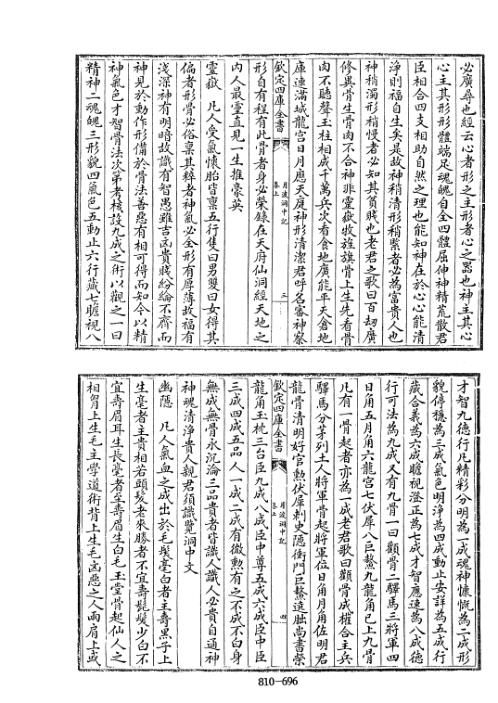 必廣尋也經云心者形之主形者心之器也神主其心
心主其形形體端足魂魄自全四體屈伸神精荒散君
臣相合四支相助自然之理也能知神在於心心能清
淨則福自生矣是故神稍清形稍緊者必為富貴人也
神稍濁形稍慢者必知其貧賤也老君之歌曰百刼廣
修異骨生骨肉不合神非靈嶽牧旌旗骨上生先看骨
肉不聽聲玉柱相成千萬兵次看食地廣能平天倉地
庫連滿城龍宮日月應天庭神形清潔君呼名審神察
欽定四庫全書
月波洞中記
卷上
三
形自有程有此骨者身必榮錄在天府仙洞經天地之
内人最靈直見一生推豪英
靈嶽 凡人受氣懷胎皆禀五行隻曰男雙曰女得其
偏者形骨必俗稟其粹者神氣必全形有厚薄故福有
淺深神有明暗故識有智愚雖吉凶貴賤紛綸不齊而
神見於動作形備於骨法善惡有相可得而知今以精
神氣色才智骨法次第考校設九成之術以觀之一曰
精神二魂魄三形貌四氣色五動止六行藏七瞻視八
才智九德行凡精彩分明為一成魂神慷慨為二成形
貌停穩為三成氣色明淨為四成動止安詳為五成行
藏合義為六成瞻視澄正為七成才智應速為八成德
行可法為九成又有九骨一曰顴骨二驛馬三將軍四
日角五月角六龍宮七伏犀八巨鰲九龍角已上九骨
凡有一骨起者亦為一成老君歌曰顴骨成權合主兵
驛馬分茅列土人將軍骨起將軍位日角月角佐明君
龍骨清明好官勲伏犀刺史㥯衙門巨鰲遶腦尚書榮
欽定四庫全書
月波洞中記
卷上
四
龍角玉枕三台臣九成八成臣中尊五成六成臣中臣
三成四成五品人一成二成有微勲有之不成不白身
無成無骨永沉淪三品貴者皆識人識人必貴自通神
神魂清淨貴人親君須識覽洞中文
幽隱 凡人氣血之成出於毛髮毫白者主壽黑子上
生毫者主貴相若頭髪老來勝者不宜壽髭髪少白不
宜壽眉耳生長毫者至壽眉生白毛玉堂骨起仙人之
相胷上生毛主學道術背上生毛凶惡之人兩肩上或
810-696